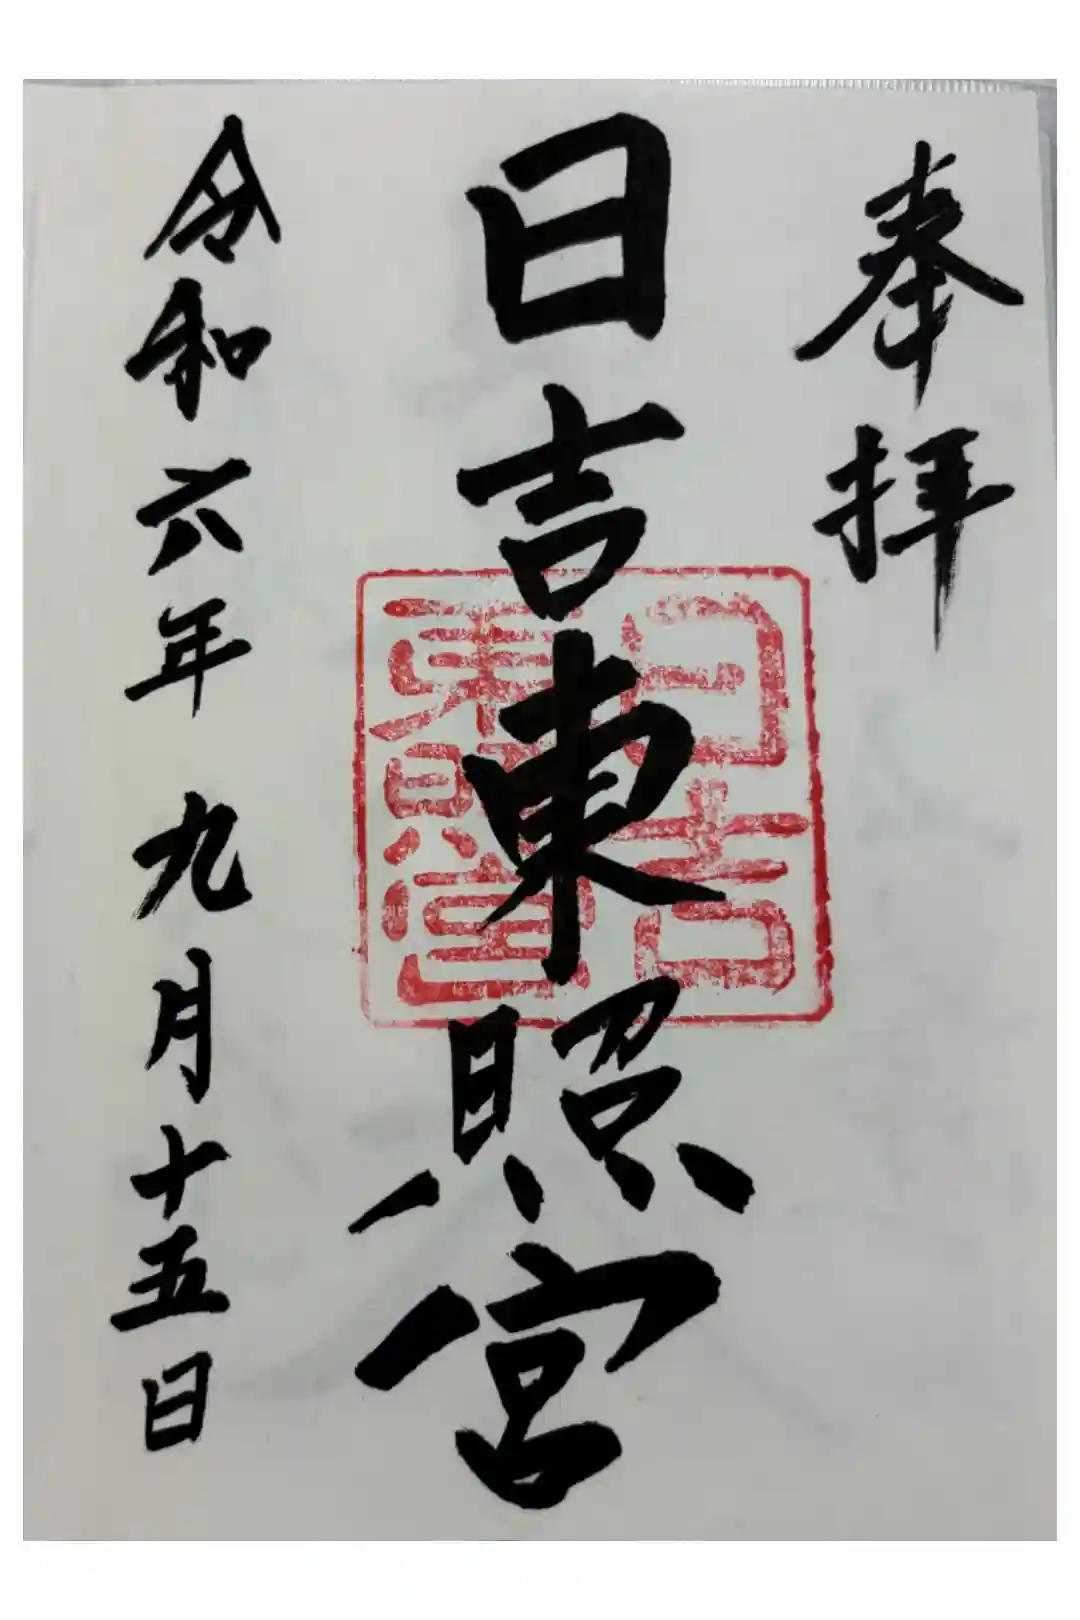 奉拝
日吉東照宮
日吉
東照宮
令和六年 九月十五日